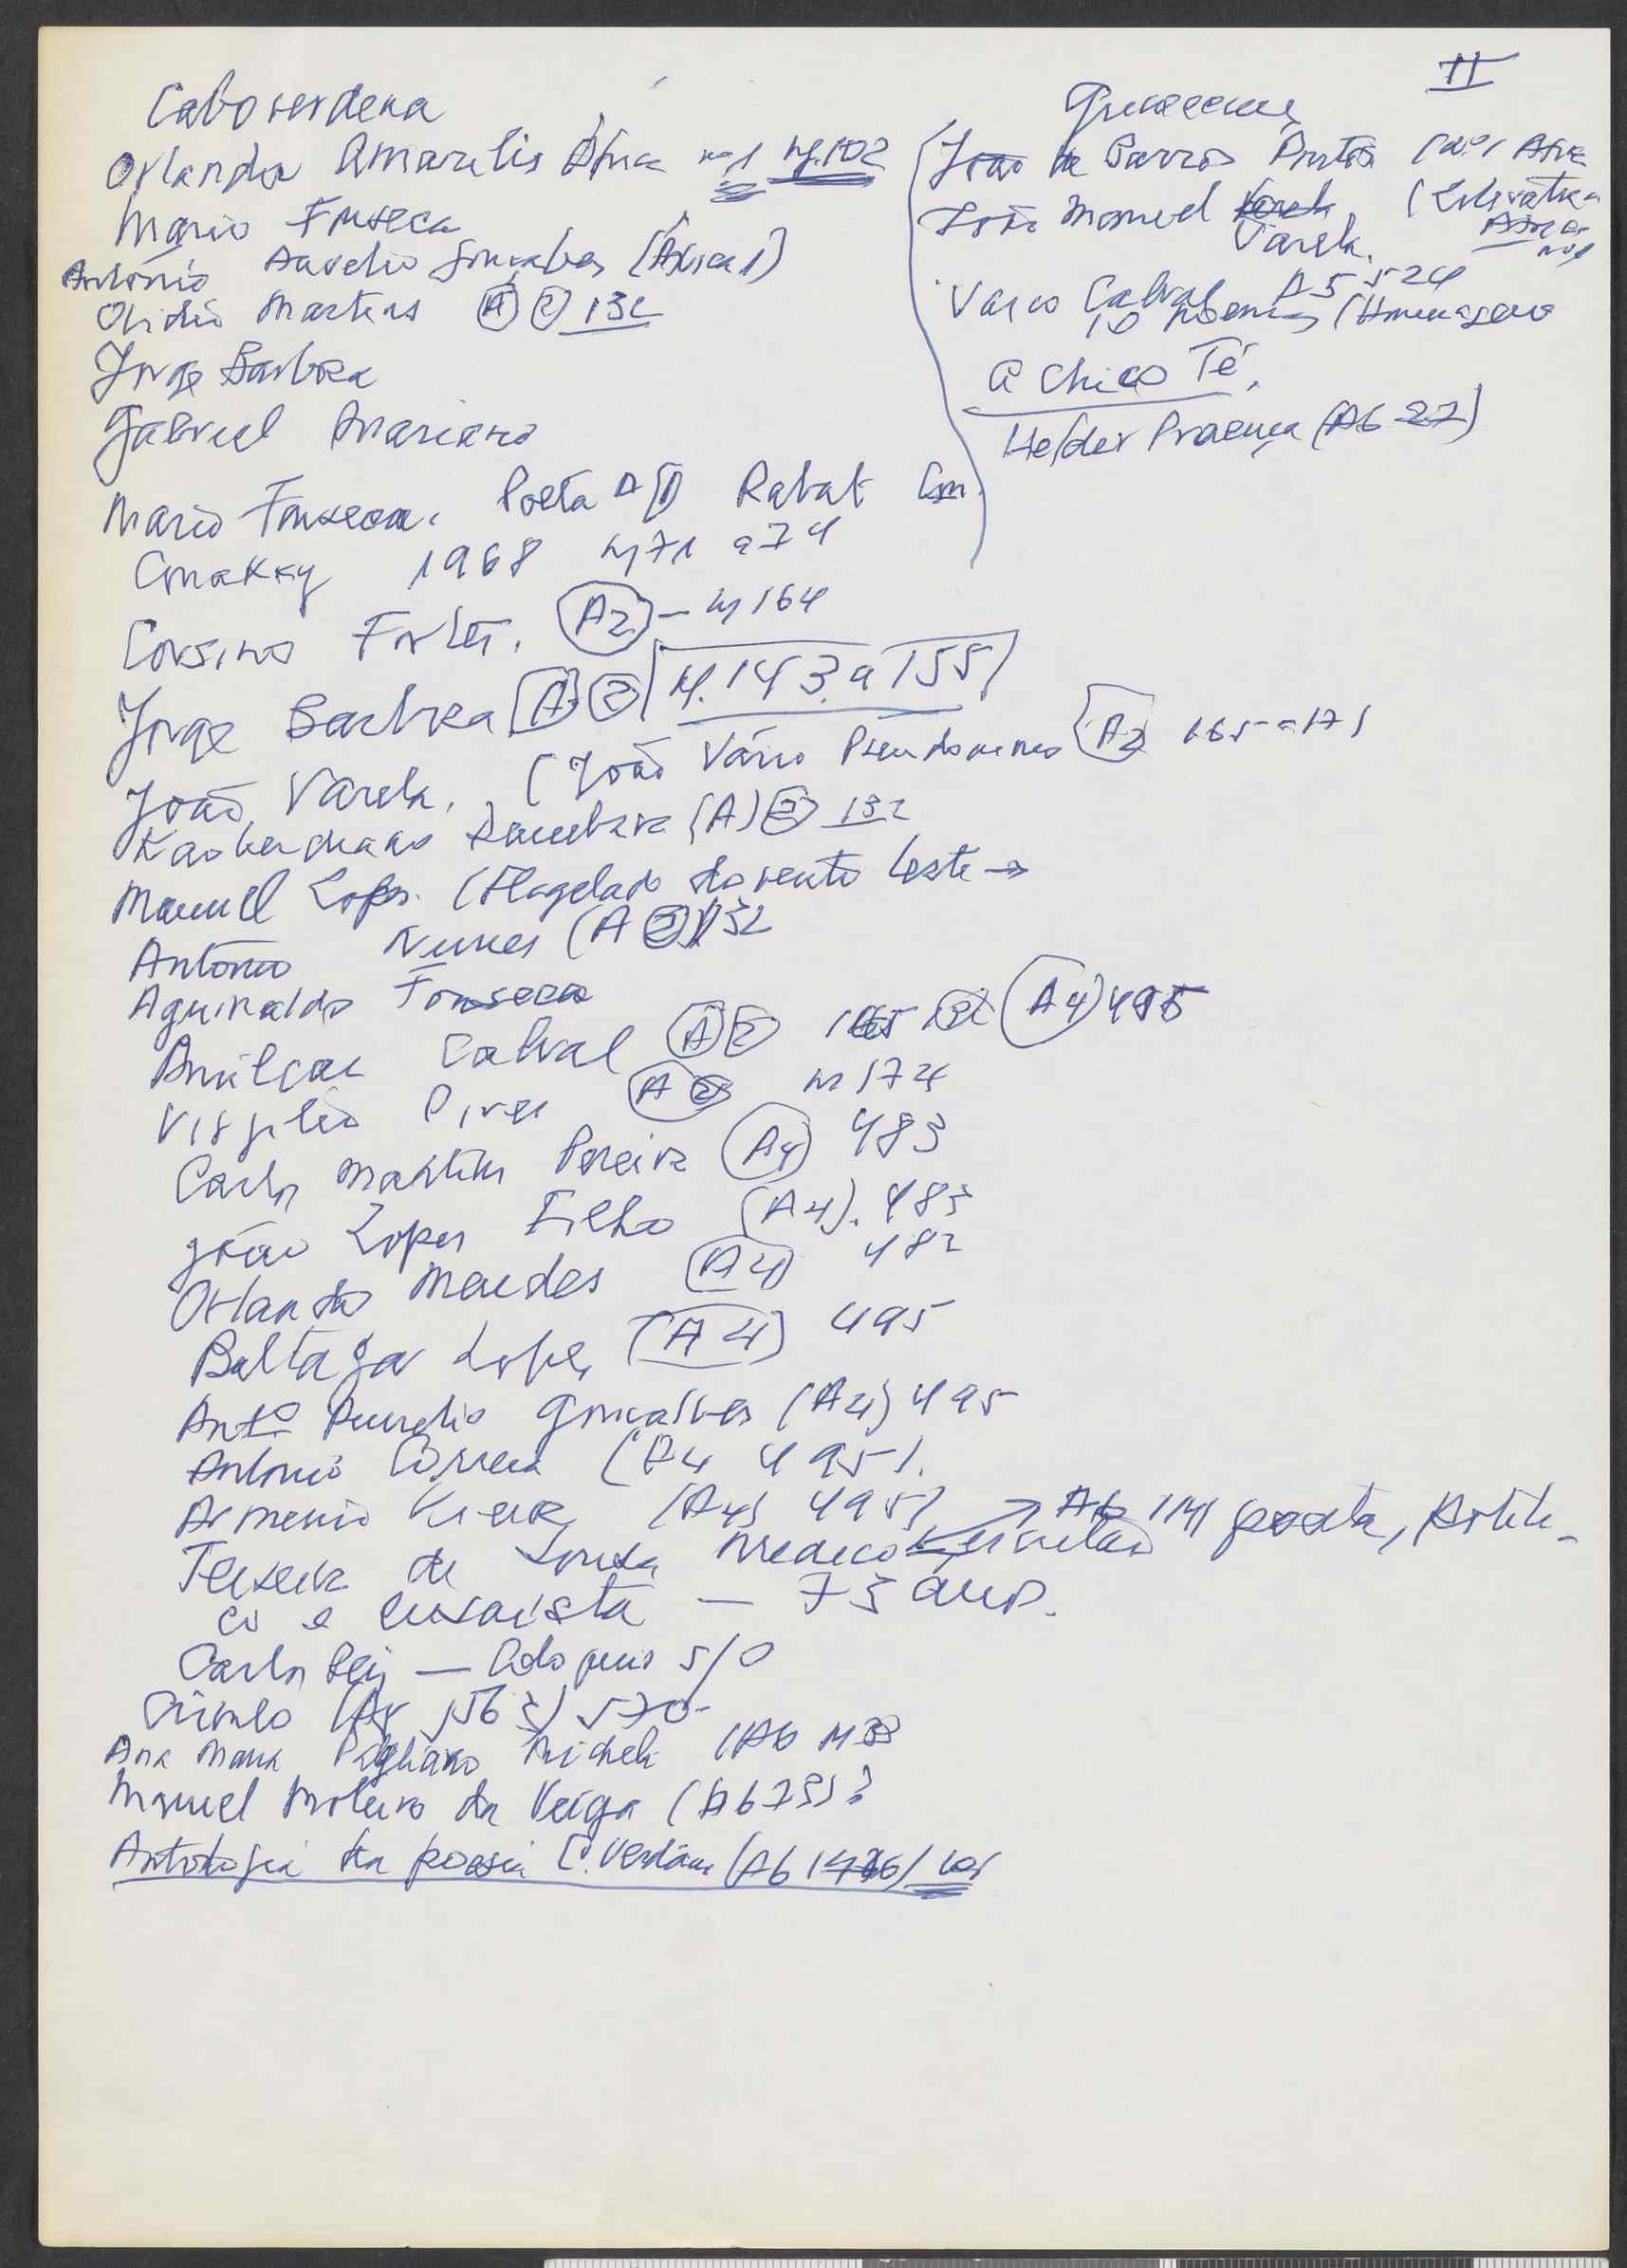 II
Caboverdena
Orlanda Amarilis África nº 1 pg. 102
Mario Fonseca
António Aurelio Gonçalves (África 1)
Ovidio Martins (A) (2) 132
Jorge Barbosa
Gabriel Mariano
Mario Fonseca. Poeta Rabat Em
Conakry 1968 pg 71 a 74
Corsino Fortes. (A2) — pg 164
Jorge Barbosa (A) (2) pg. 143 a 155
João Varela. (João Vário Pseudonimo (A2 165 a 171
Kaoberdiano Dambara (A) (2) 132
Manuel Lopes. (Flagelado do vento Leste →
António Nunes (A 2) 132
Aguinaldo Fonseca
Amilcar Cabral (A) (2) (A4) 495
Virgilio Pires (A 2) pg 174
Carlos Martins Pereira (A4) 483
João Lopes Filho (A4). 483
Orlando Mendes (A4) 482
Baltazar Lopes (A4) 495
Antº Aurelio Gonçalves (A4) 495
Antonio Correia (A4 495).
Armenio Vieira (A4) 495) → A6 141 poeta, politi-
Teixeira de Sousa Medico
co e ensaista — 73 anos.
Carlos Reis — 510
570
Ana Maria Michel (A6
Manuel da Veiga (A6 75)?
Antologia da poesia C. Verdiana (A6
Guineense
João de Barros Pintos (nº 1 Afric
João Manuel Varela (Literatura
Varela. Africa nº 1
Vasco Cabral A5 524
10 Poemas (Homenagem
a Chico Té.
Helder Proença (A6 27)